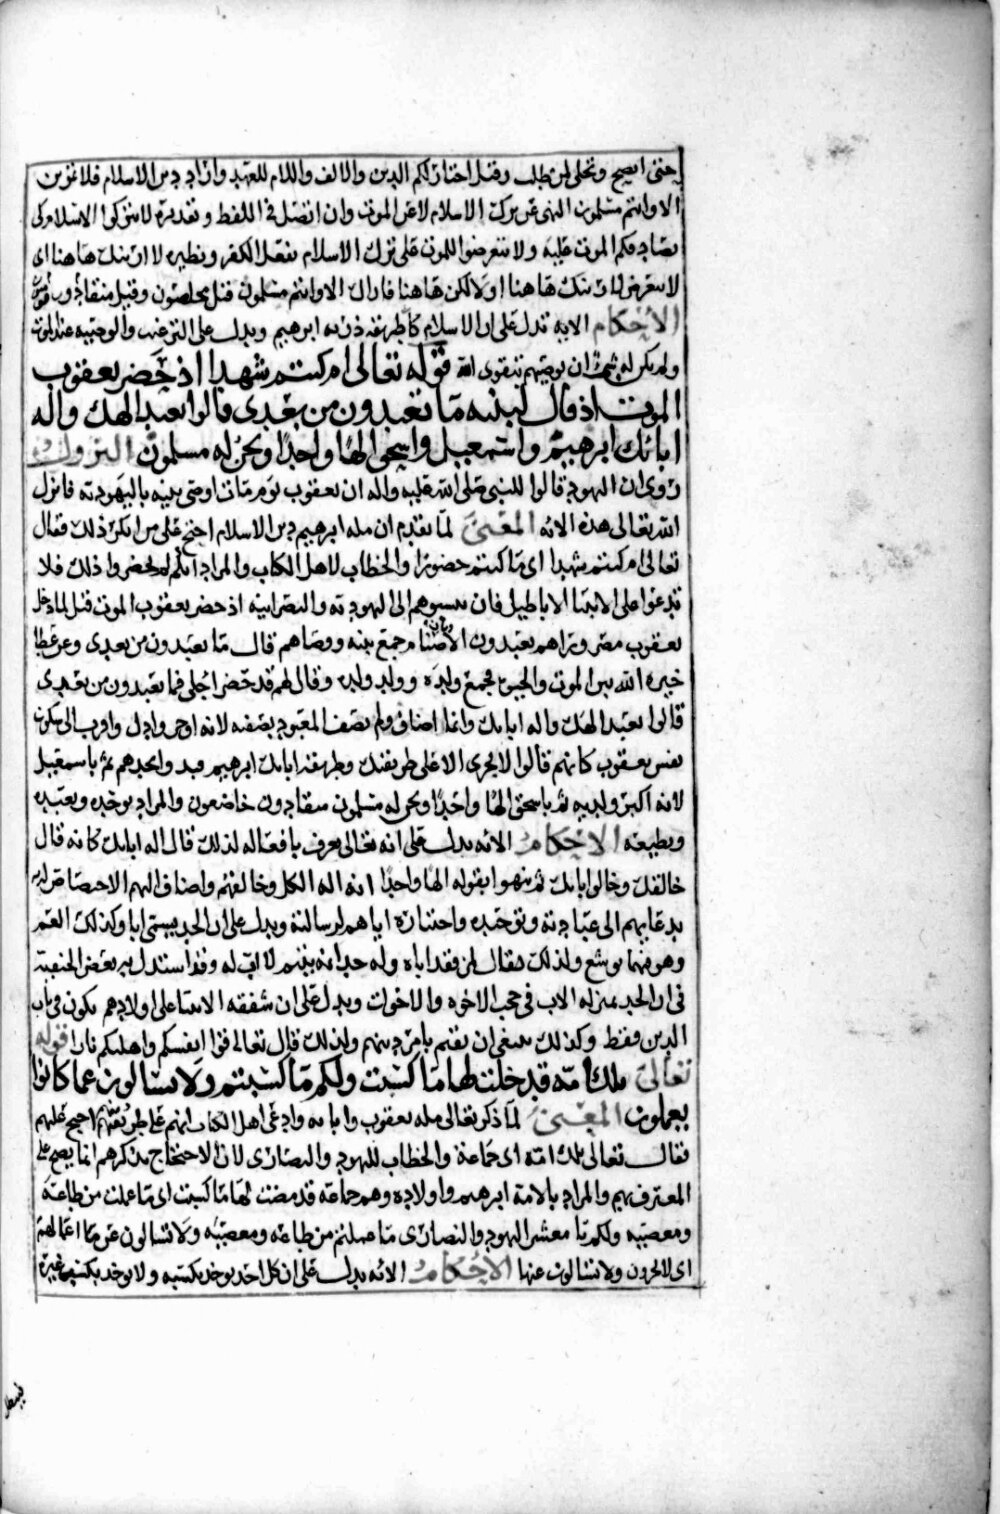 حتى اصبح وتحلى لمن طلب وقيل اختار لكم الدين والالف واللام للعهد واراد دين الاسلام فلا تموتن
الا وانتم مسلمون النهي عن ترك الاسلام لا عن الموت وان اتصل في اللفظ وتقديره لا تتركوا الاسلام كي
يصادفكم الموت عليه ولا تتعرضوا للموت على ترك الاسلام بفعل الكفر ونظيره لا ارينك هاهنا اي
لا تتعرض لان ارينك هاهنا اولا تكن هاهنا فاراك الا وانتم مسلمون قيل مخلصون وقيل منقادون
الاحكام الاية تدل على ان الاسلام كان طريقة دين ابراهيم ويدل على الترغيب والوصية عند الموت
ولم يكن له شي ان يوصيهم بتقوى الله قوله تعالى ام كنتم شهدا اذ حضر يعقوب
الموت اذ قال لبنيه ما تعبدون من بعدي قالوا نعبد الهك واله
ابائك ابرهيم واسمعيل واسحق الها واحدا ونحن له مسلمون النزول
روي ان اليهود قالوا للنبي صلى الله عليه واله ان يعقوب يوم مات اوصى بنيه باليهودية فانزل
الله تعالى هذه الاية المعنى لما تقدم ان ملة ابرهيم دين الاسلام احتج على من انكر ذلك فقال
تعالى ام كنتم شهدا اي ما كنتم حضورا والخطاب لاهل الكتاب والمراد انكم لم تحضروا ذلك فلا
تدعوا على الانبيا الاباطيل فان تنسبوهم الى اليهودية والنصرانية اذ حضر يعقوب الموت قيل لما دخل
يعقوب مصر وراهم يعبدون الاصنام جمع بنيه ووصاهم قال ما تعبدون من بعدي وعن عطا
خيره الله بين الموت والحيوة فجمع ولده وولد ولده وقال لهم قد حضر اجلي فما تعبدون من بعدي
قالوا نعبد الهك واله ابايك وانما اضاف ولم يصف المعبود بصفته لانه اوجز وادل واقرب الى سكون
نفس يعقوب كانهم قالوا لا نجري الا على طريقتك وطريقة ابايك ابرهيم فبدوا بجدهم ثم باسمعيل
لانه اكبر ولديه ثم باسحق الها واحدا ونحن له مسلمون منقادون خاضعون والمراد نوحده ونعبده
ونطيعه الاحكام الاية تدل على انه تعالى يعرف بافعاله لذلك قال اله ابايك كانه قال
خالقك وخالق ابايك ثم نبهوا بقوله الها واحدا انه اله الكل وخالقهم واضاف اليهم لاختصاص
بدعايهم الى عبادته وتوحيده واختياره اياهم لرسالته ويدل على ان الجد يسمى ابا وكذلك العم
وهو فيهما توسع ولذلك يقال لمن فقد اباه وله جد انه يتيم لا اب له وقد استدل به بعض الحنفية
في ان الجد بمنزلة الاب في حجب الاخوة والاخوات ويدل على ان شفقة الانبيا على اولادهم يكون في باب
الدين فقط وكذلك ينبغي ان يقيم بامر دينهم ولذلك قال تعالى قوا انفسكم واهليكم نارا قوله
تعالى تلك امة قد خلت لها ما كسبت ولكم ما كسبتم ولا تسالون عما كانوا
يعملون المعنى لما ذكر تعالى ملة يعقوب وابايه وادعى اهل الكتاب انهم على طريقتهم احتج عليهم
فقال تعالى تلك امة اي جماعة والخطاب لليهود والنصارى لان الاحتجاج بذكرهم انما يصح على
المعترف بهم والمراد بالامة ابرهيم واولاده وهم جماعة قد مضت لها ما كسبت اي ما عملت من طاعة
ومعصية ولكم يا معشر اليهود والنصارى ما عملتم من طاعة ومعصية ولا تسالون عن ما اعمالهم
اي لا تجزون ولا تسالون عنها الاحكام الاية تدل على ان كل احد يوخذ بكسبه ولا يوخذ بكسب غيره